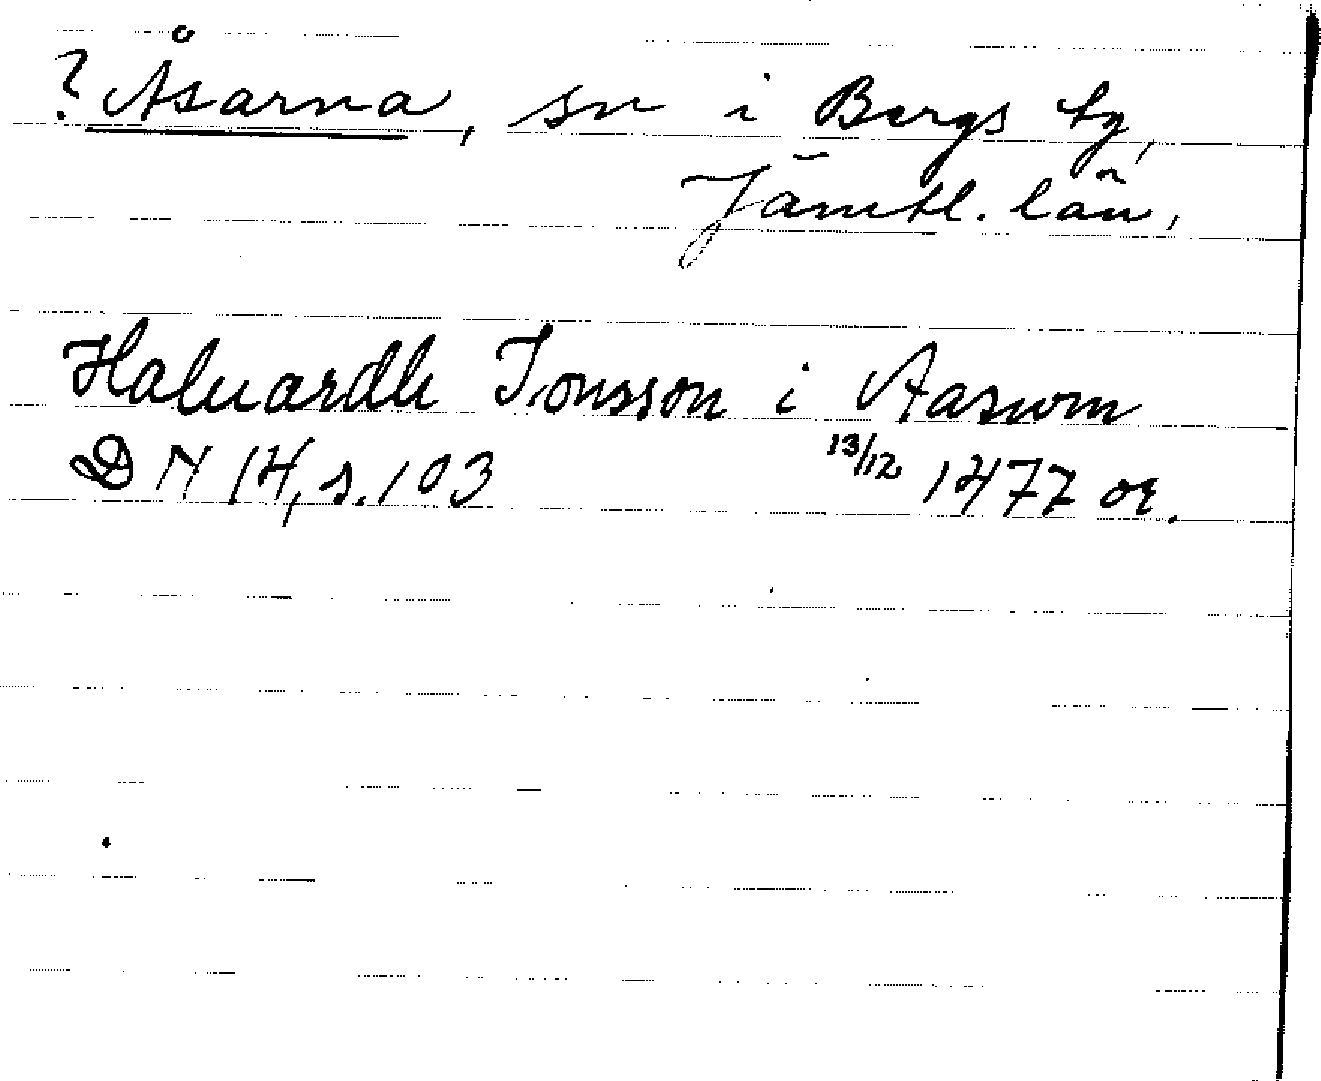 ? Åsarna, sn i Bergs tg,
Jämtl. län,
Haluardh Jonsson i Aaswm
DN 14, s. 103 13/12 1477 or.